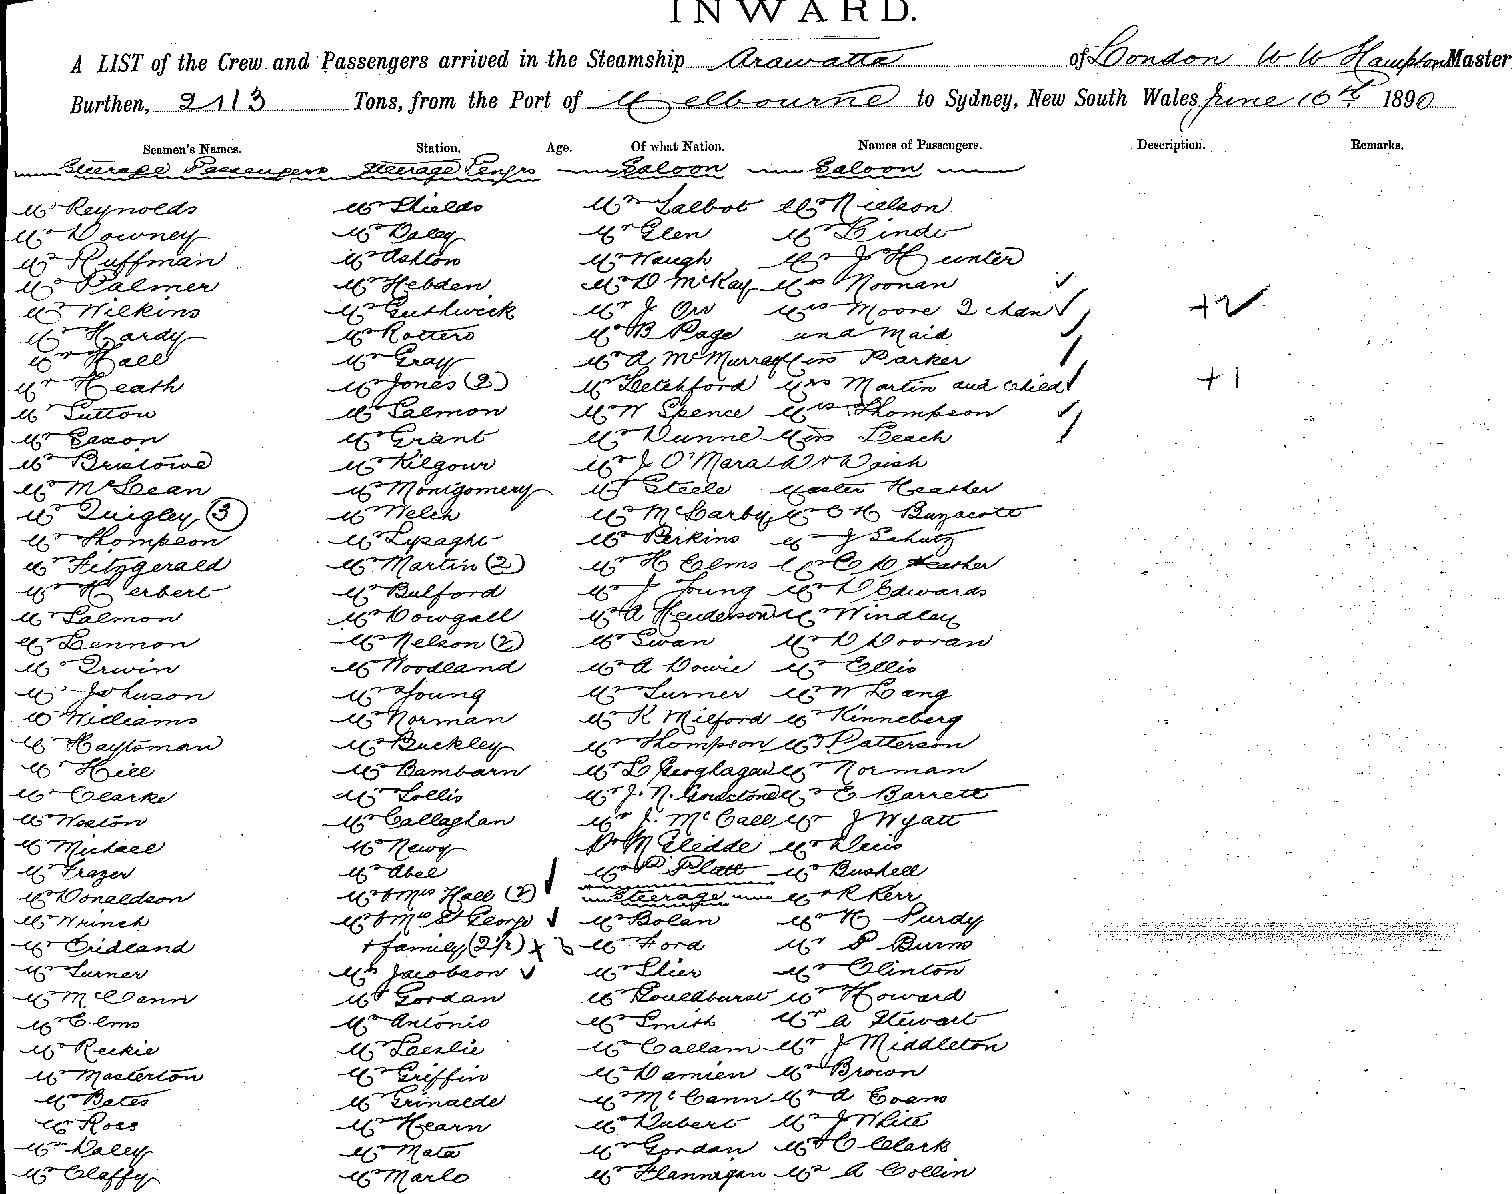 INWARD.
A LIST of the Crew and Passengers arrived in the Steamship Arawatta of London W W Hampton Master
Burthen, 2113 Tons, from the Port of Melbourne to Sydney, New South Wales June 10th 1890
Seamen's Names. Station. Age. Of what Nation. Names of Passengers. Description. Remarks.
Steerage Passengers Steerage Pengrs Saloon Saloon
Mr Reynolds Mr Shields Mr Talbot Mr Nielson
Mr Downey Mr Daley Mr Glen Mr Lindo
Mr Ruffman Mr Ashton Mr Waugh Mr J Hunter
Mr Palmer Mr Hebden Mr D McKay Mrs Noonan ✓
Mr Wilkins Mr Guthwick Mr J Orr Mrs Moore 2 chdn ✓ +2
Mr Hardy Mr Rotters Mr B Page and Maid ✓
Mr Hall Mr Gray Mr A McMurray Miss Parker
Mr Heath Mr Jones (2) Mr Letchford Mrs Martin and child +1
Mr Sutton Mr Salmon Mr W Spence Mrs Thompson ✓
Mr Saxon Mr Grant Mr Dunne Miss Leach
Mr Bristowe Mr Kilgour Mr J O'Mara Dr
Mr McLean Mr Montgomery Mr Steele Master Heather
Mr Quigley (3) Mr Welch Mr McCarby Mr C H Buzacott
Mr Thompson Mr Lysaght Mr Perkins Mr J Schutz
Mr Fitzgerald Mr Martin (2) Mr H Elms Mr C D Heather
Mr Herbert Mr Bulford Mr J Young Mr D Edwards
Mr Salmon Mr Dowgall Mr A Henderson Mr Windley
Mr Lennon Mr Nelson (2) Mr Swan Mr D Doovan
Mr Irwin Mr Woodland Mr A Dowie Mr Ellis
Mr Johnson Mr Young Mr Turner Mr W Lang
Mr Williams Mr Norman Mr K Milford Mr Kinneberg
Mr Haytsman Mr Buckley Mr Thompson Mr Patterson
Mr Hill Mr Bambarn Mr L Geoghagan Mr Norman
Mr Clarke Mr Lollis Mr J. N. Mr E Barrett
Mr Weston Mr Callaghan Mr J. McCall Mr J Wyatt
Mr Michael Mr Newy Dr M Mr Davis
Mr Frazer Mr Abel ✓ Mr P Platt Mr Bushell
Mr Donaldson Mr & Mrs Hall (2) Steerage Mr R Kerr
Mr Wrinch Mr & Mrs St George ✓ Mr Bolan Mr H Purdy
Mr Cridland + family (2½) Mr Ford Mr P Burns
Mr Turner Mrs Jacobson ✓ Mr Shier Mr Clinton
Mr McCann Mr Gordan Mr Gouldhurst Mr Howard
Mr Elms Mr Antonio Mr Smith Mr A Stewart
Mr Reekie Mr Leslie Mr Callam Mr J Middleton
Mr Masterton Mr Griffin Mr Damien Mr Brown
Mr Bates Mr Grinalde Mr McCann Mr A Evans
Mr Ross Mr Hearn Mr Dubert Mr J White
Mr Daley Mr Mata Mr Gordan Mr C Clark
Mr Claffy Mr Marlo Mr Flannigan Mr A Collin